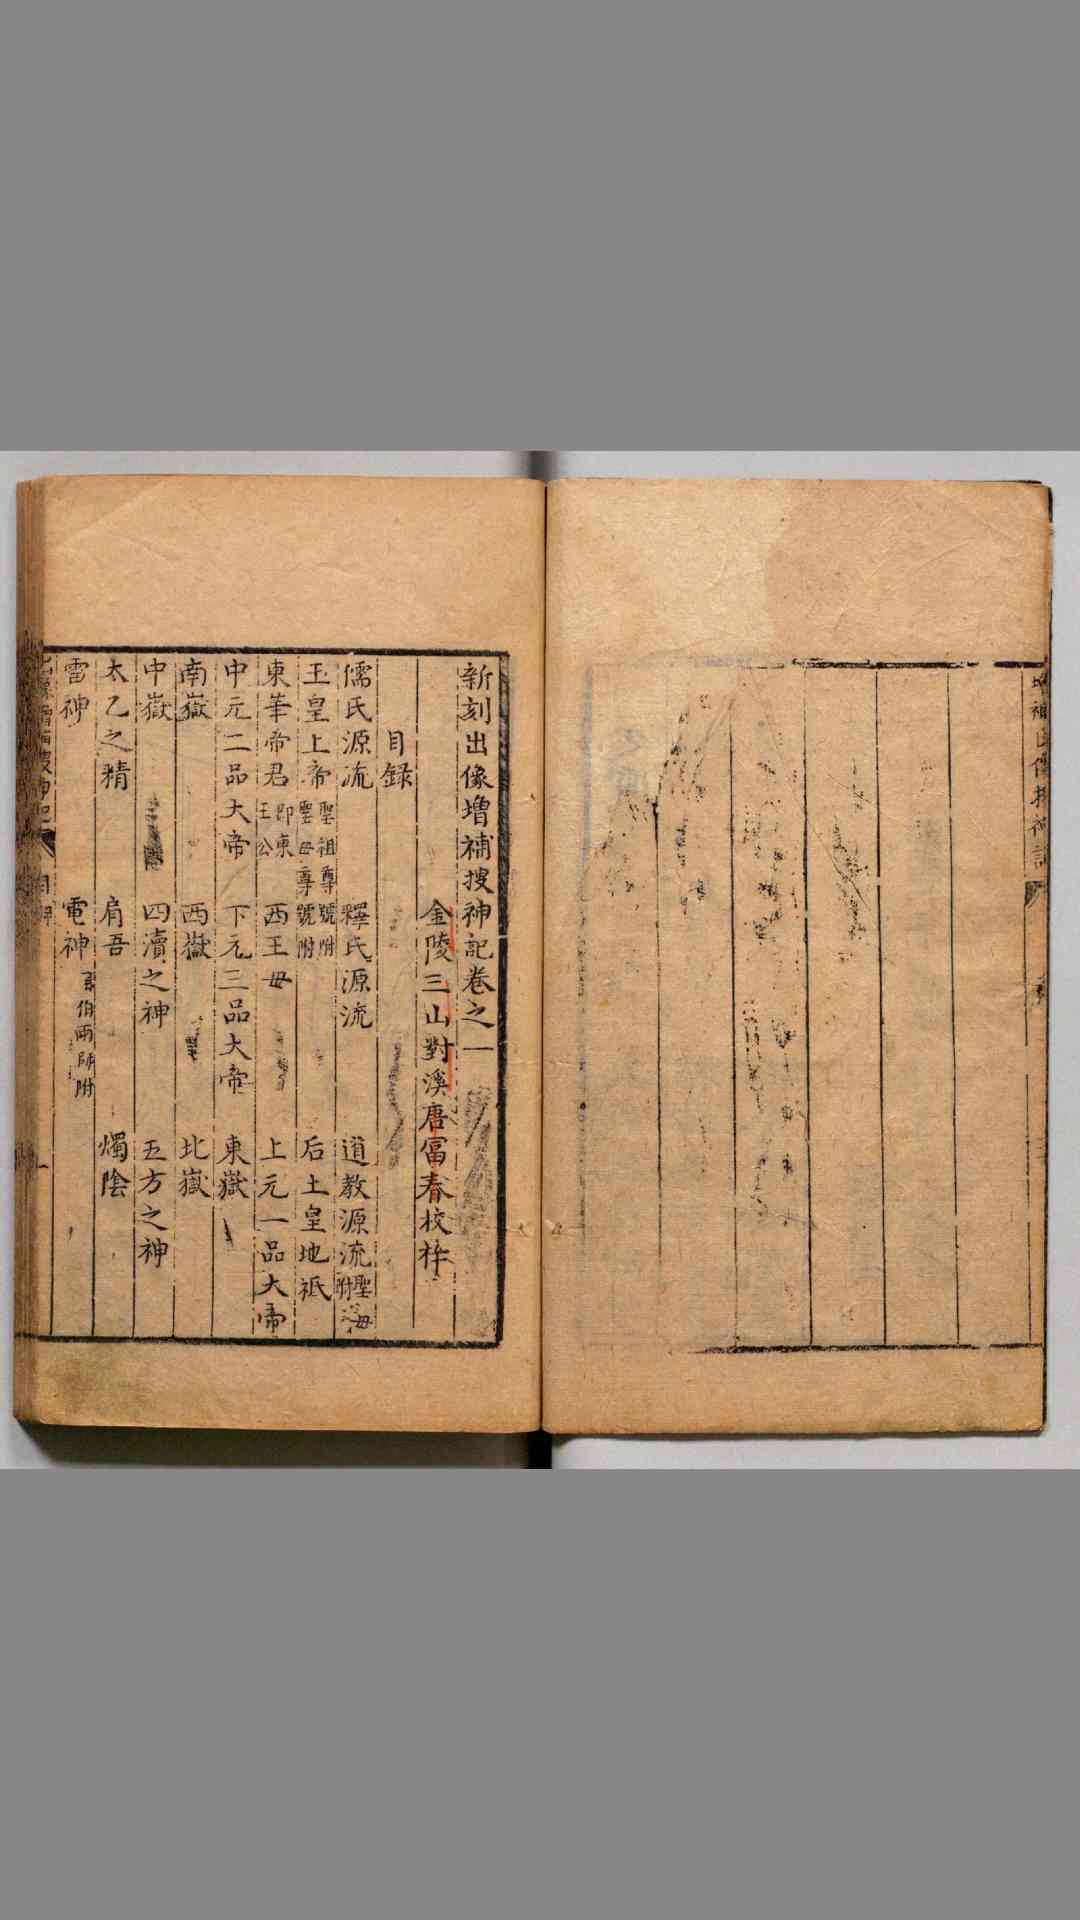 新刻出像增補搜神記卷之一
金陵三山對溪唐富春校梓
目錄
儒氏源流 釋氏源流 道教源流聖母附
玉皇上帝聖祖尊號附聖母尊號附 后土皇地祇
東華帝君即東王公 西王母 上元一品大帝
中元二品大帝 下元三品大帝 東嶽
南嶽 西嶽 北嶽
中嶽 四瀆之神 五方之神
太乙之精 肩吾 燭陰
雷神 電神 伯雨師附